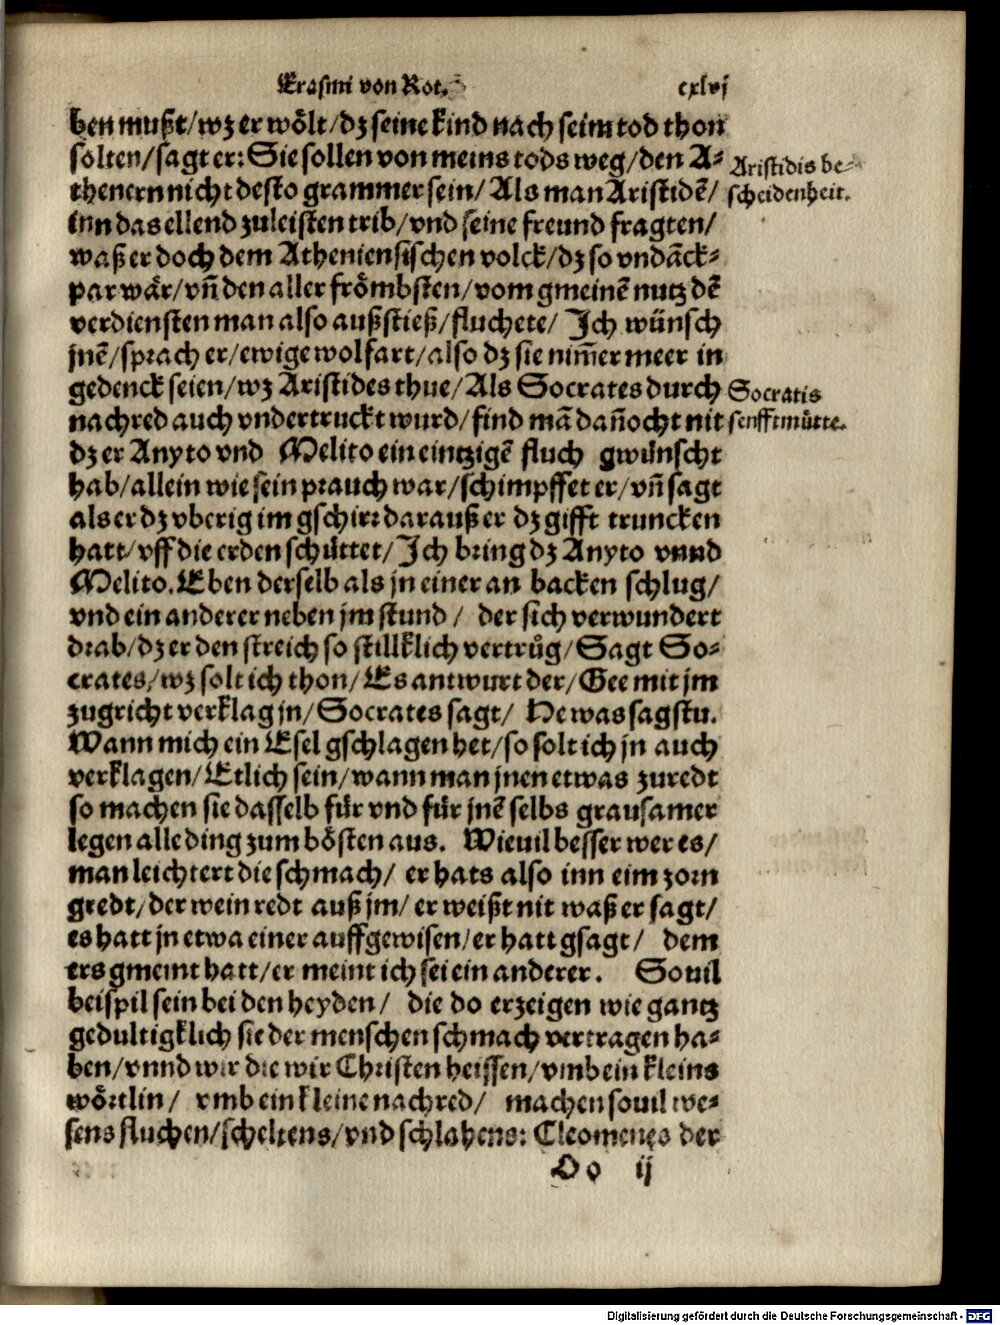 Erasmi von Rot. cxlvj
ben mußt/wz er wölt/dz seine kind nach seim tod thon
solten/sagt er: Sie sollen von meins tods weg/den A⸗
thenern nicht desto grammer sein/Als man Aristidē/
inn das ellend zuleisten trib/vnd seine freund fragten/
waß er doch dem Atheniensischen volck/dz so vndāck⸗
par wär/vn̄ den aller frömbsten/vom gmeinē nutz dē
verdiensten man also außstieß/fluchete/ Jch wünsch
jnē/sprach er/ewige wolfart/also dz sie nim̄er meer in
gedenck seien/wz Aristides thue/Als Socrates durch
nachred auch vndertruckt wurd/find mā dan̄ocht nit
dz er Anyto vnd Melito ein eintzigē fluch gwünscht
hab/allein wie sein prauch war/schimpffet er/vn̄ sagt
als er dz vberig im gschirr darauß er dz gifft truncken
hatt/vff die erden schüttet/Jch bring dz Anyto vnnd
Melito. Eben derselb als jn einer an backen schlug/
vnd ein anderer neben jm stund/ der sich verwundert
drab/dz er den streich so stillklich vertrůg/Sagt So⸗
crates/wz solt ich thon/Es antwurt der/Gee mit jm
zugricht verklag jn/Socrates sagt/ He was sagstu.
Wann mich ein Esel gschlagen het/so solt ich jn auch
verklagen/Etlich sein/wann man jnen etwas zuredt
so machen sie dasselb für vnd für jnē selbs grausamer
legen alle ding zum bösten aus. Wieuil besser wer es/
man leichtert die schmach/ er hats also inn eim zorn
gredt/der wein redt auß jm/ er weißt nit waß er sagt/
es hatt jn etwa einer auffgewisen/er hatt gsagt/ dem
ers gmeint hatt/er meint ich sei ein anderer. Souil
beispil sein bei den heyden/ die do erzeigen wie gantz
gedultigklich sie der menschen schmach vertragen ha⸗
ben/vnnd wir die wir Christen heissen/vmb ein kleins
wörtlin/ vmb ein kleine nachred/ machen souil we⸗
sens fluchen/scheltens/vnd schlahens: Cleomenes der
Oo ij
Aristidis be⸗
scheidenheit.
Socratis
senfftmütte.
Digitalisierung gefördert durch die Deutsche Forschungsgemeinschaft - DFG